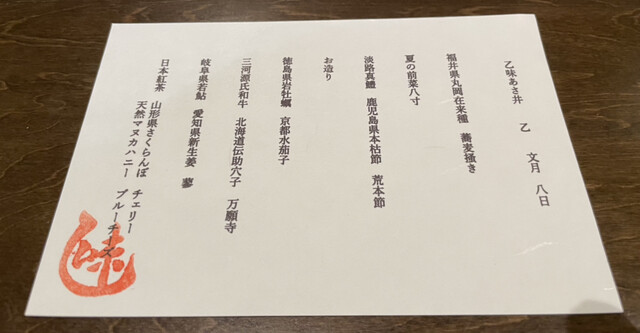 乙味あさ井　乙　文月　八日
福井県丸岡在来種　蕎麦掻き
夏の前菜八寸
淡路真鱧　鹿児島県本枯節　荒本節
お造り
徳島県岩牡蠣　京都水茄子
三河源氏和牛　北海道伝助穴子　万願寺
岐阜県若鮎　愛知県新生姜　蓼
日本紅茶　山形県さくらんぼ　チェリー
天然マヌカハニー　ブルーチーズ
味